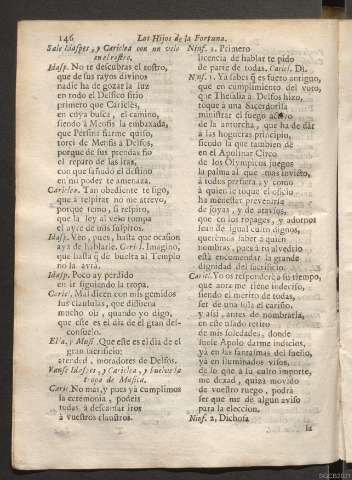 146 Los Hijos de la Fortuna.
Sale Idaspes, y Cariclea con un velo
en el rostro.
Idasp. No te descubras el rostro,
que de sus rayos divinos
nadie ha de gozar la luz
en todo el Delfico sitio
primero que Caricles,
en cuya busca, el camino,
siendo à Menfis la embaxada,
que Persina fiarme quiso,
torcì de Menfis à Delfos,
porque de sus prendas fio
el reparo de las iras,
con que sañudo el destino
en mi poder te amenaza.
Cariclea. Tan obediente te sigo,
que à respirar no me atrevo,
porque temo, si respiro,
que la ley al velo rompa
el ayre de mis suspiros.
Idasp. Vèn, pues, hasta que ocasion
aya de hablarle. Cari. Imagino,
que hasta que de buelta al Templo
no la avrà.
Idasp. Poco ay perdido
en ir siguiendo la tropa.
Caric. Mal dicen con mis gemidos
sus clausulas, que dissuena
mucho oìr, quando yo digo,
que este es el dia de el gran des-
consuelo.
Ella, y Musi. Que este es el dia de el
gran sacrificio;
atended, moradores de Delfos.
Vanse Idaspes, y Cariclea, y buelve la
tropa de Musica.
Caric. No mas, y pues ya cumplimos
la ceremonia, podeis
todas à descansar iros
à vuestros claustros.
Ninf. 2. Primero
licencia de hablar te pido
de parte de todas. Caricl. Di.
Ninf. 1. Ya sabes q̃ es fuero antiguo,
que en cumplimiento del voto,
que Thesalia à Delfos hizo,
toque à una Sacerdotisa
ministrar el fuego activo
de la antorcha, que ha de dàr
à las hogueras principio,
siendo la que tambien dè
en el Apolinar Circo
de los Olympicos juegos
la palma al que mas invicto,
à todos prefiera; y como
à quien le toque el oficio
ha menester prevenirse
de joyas, y de atavios,
que en los ropages, y adornos
sean de igual culto dignos,
querèmos saber à quien
nombras, pues à tu alvedrio
està encomendar la grande
dignidad del sacrificio.
Caric. Yo os responderè à su tiempo,
que aora me tiene indeciso,
siendo el merito de todas,
ser de una sola el cariño,
y assi, antes de nombrarla,
en este usado retiro
de mis soledades, donde
suele Apolo darme indicios,
yà en las fantasmas del sueño,
yà en iluminados visos,
de lo que à su culto importe,
me dexad, quizà movido
de vuestro ruego, podrà
ser que me dè algun aviso
para la eleccion.
Ninf. 2. Dichosa
la